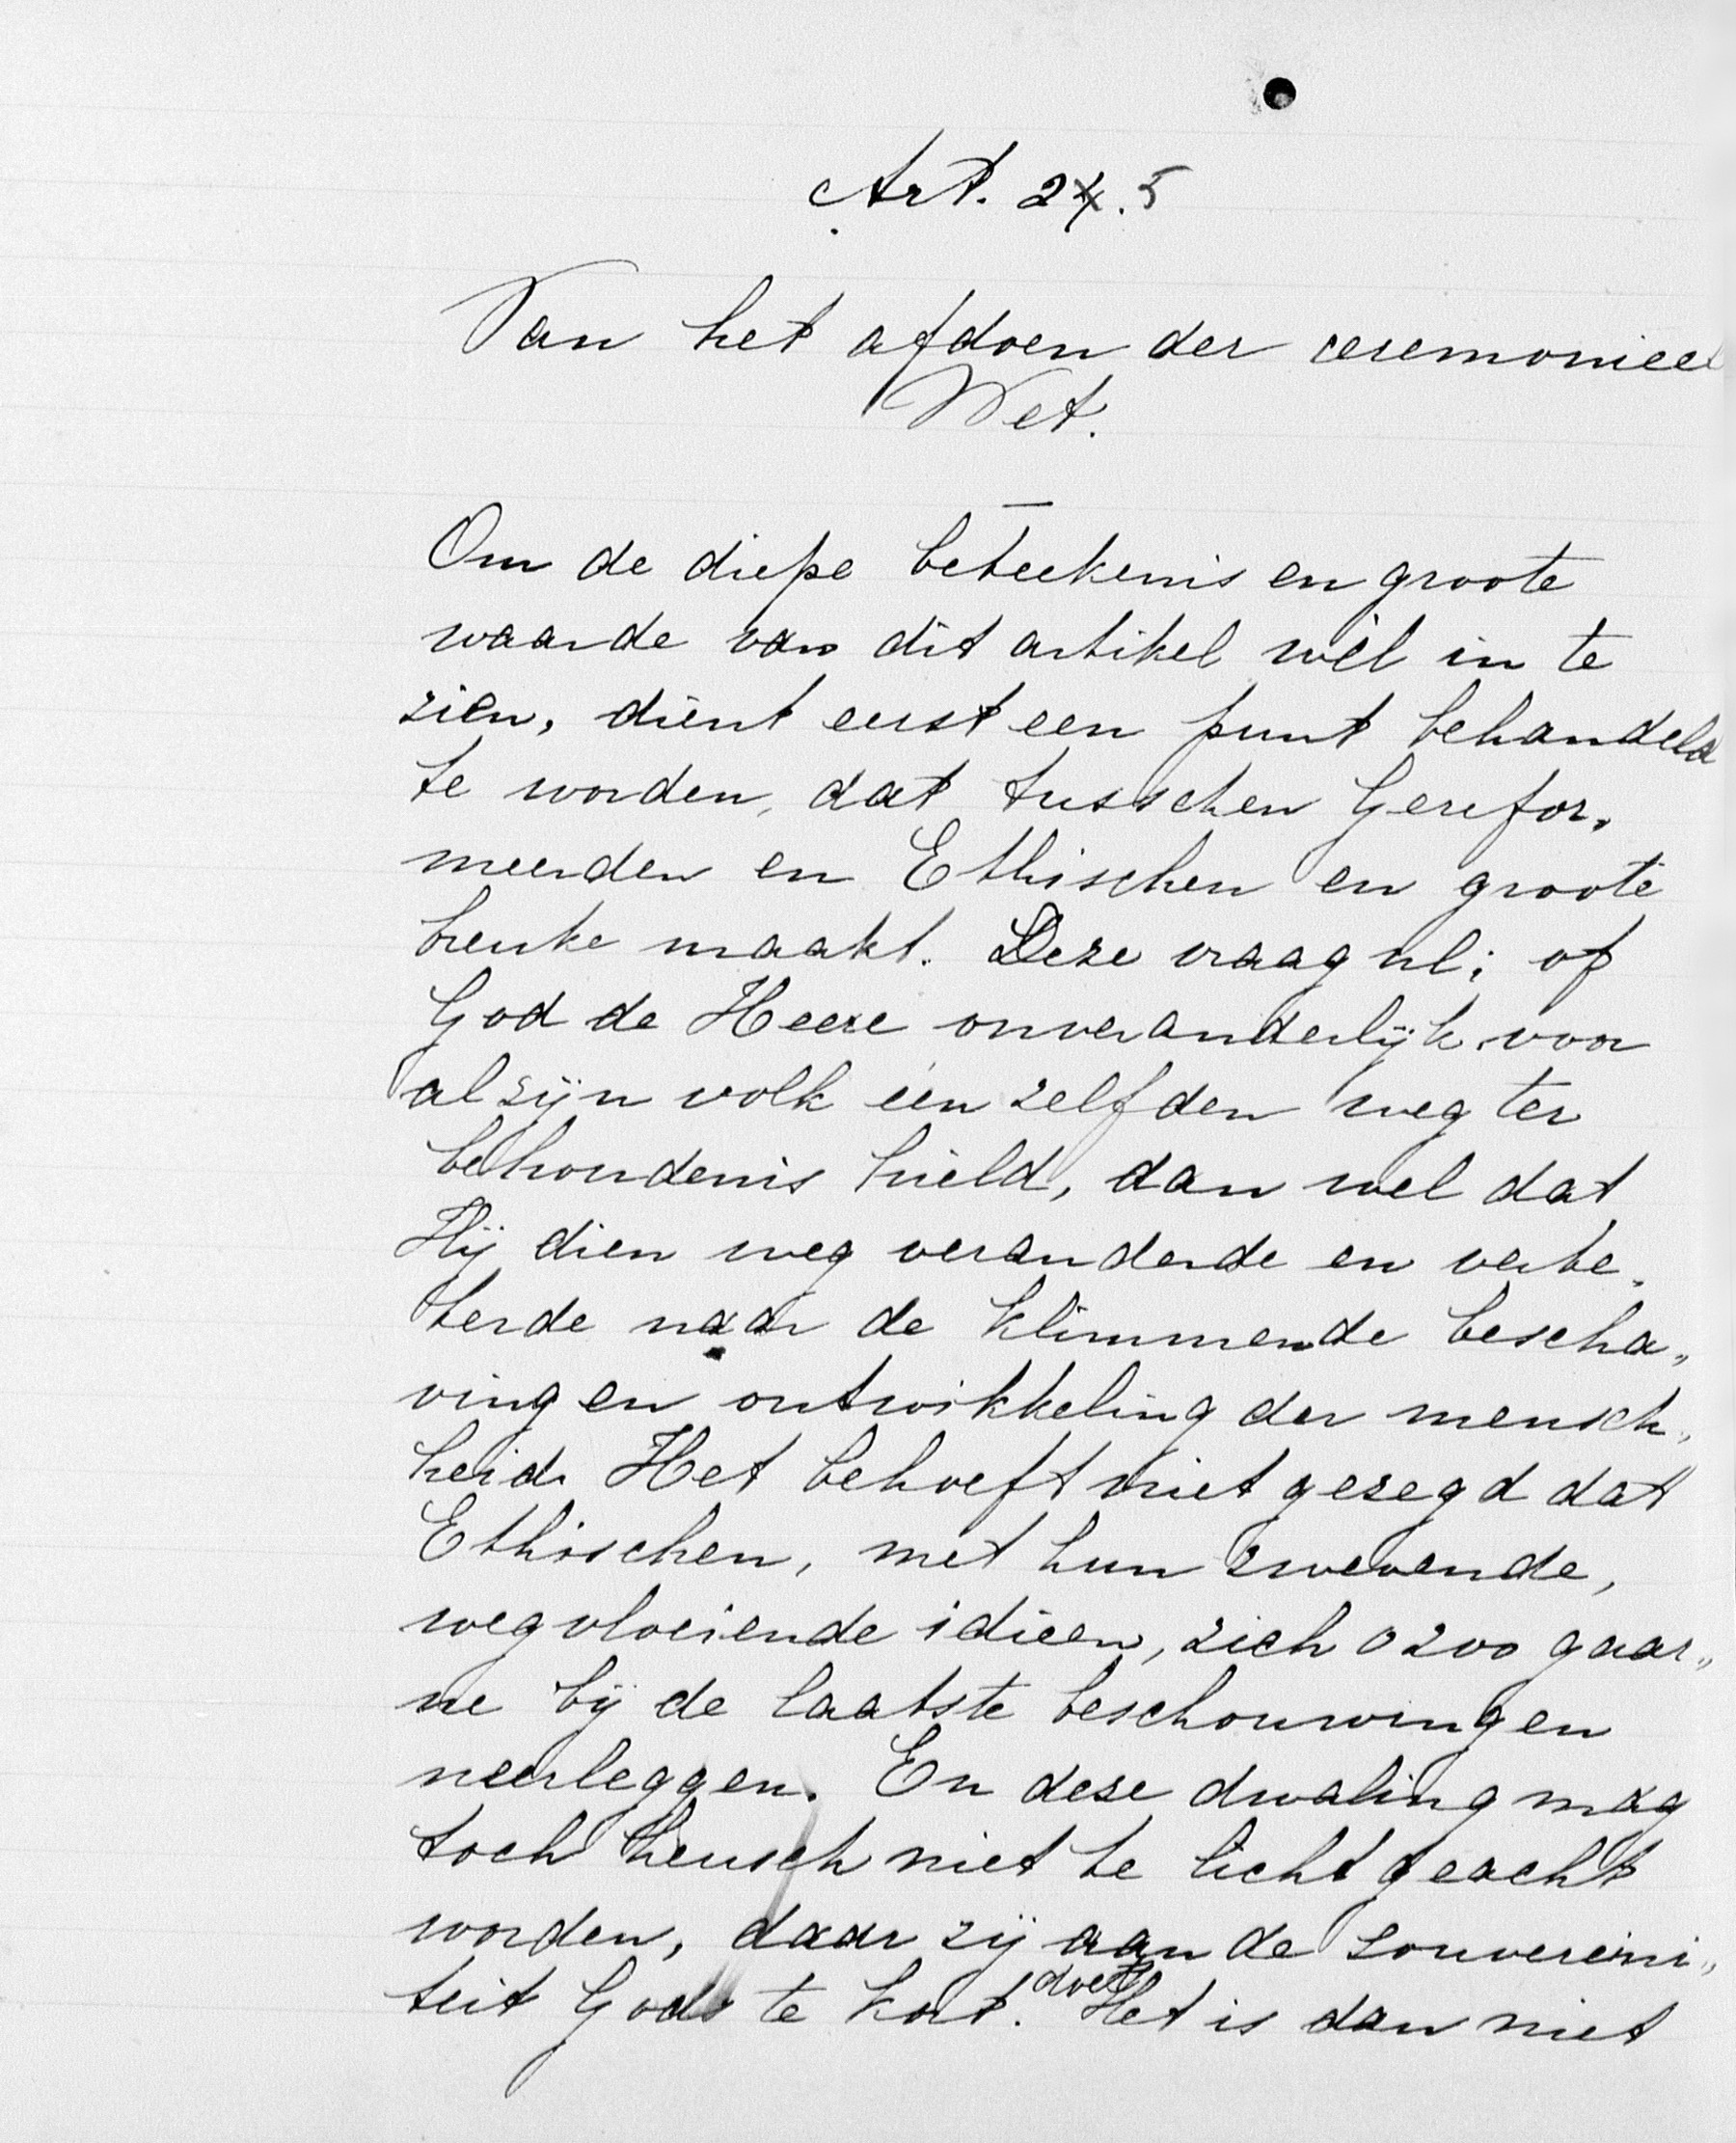 Art. 24. 5
Van het afdoen der ceremonieel
Wet.
Om de diepe beteekenis en groote
waarde van dit artikel wèl in te
zien, dient eerst een punt behandeld
te worden, dat tusschen Gerefor„
meerden en Ethischen en groote
breuke maakt. Deze vraag nl: of
God de Heere onveranderlijk voor
al zijn volk één zelfden weg ter
behoudenis hield, dan wel dat
Hij dien weg veranderde en verbe„
terde naar de klimmende bescha„
ving en ontwikkeling der mensch„
heid. Het behoeft niet gezegd dat
Ethischen, met hun zwevende,
wegvloeiende idieën, zich o zoo gaar„
ne bij de laatste beschouwingen
neerleggen. En deze dwaling mag
toch heusch niet te licht geacht
worden, daar zij aan de souvereini„
teit Gods te kort doet. Het is dan niet